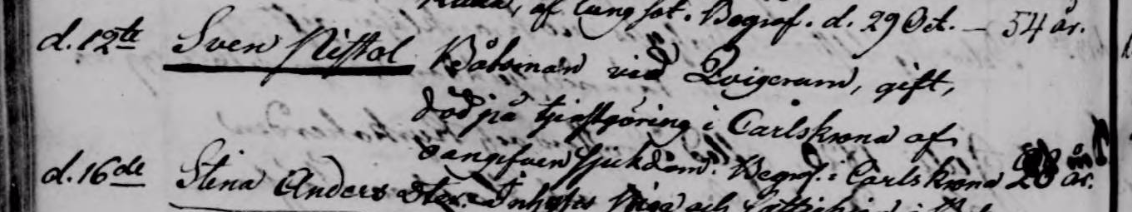 af lungsot. Begraf. d. 29 Oct. – 54 år.
d. 12te Sven Pistol Båtsman vid Qvigerum, gift,
död på tjenstgöring i Carlskrona af
oangifven sjukdom. Begraf. i Carlskrona 28 år.
d. 16de Stina Andersdter. Inhyses Piga och